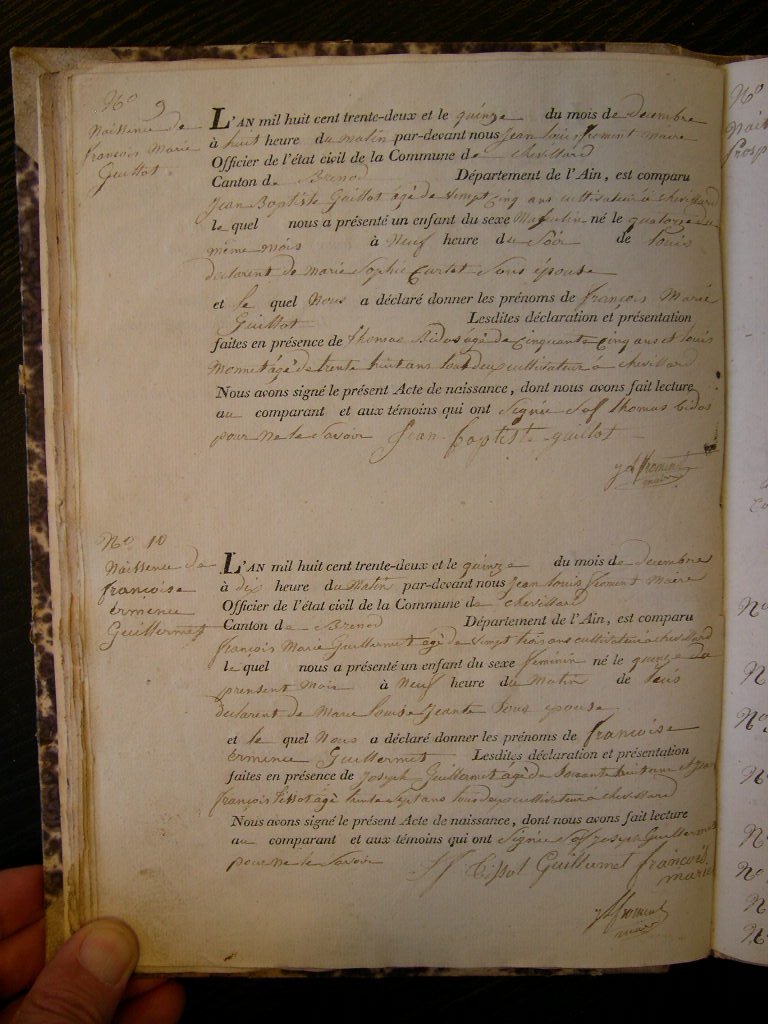 No 9
Naissence de
françois Marie
Guillot
L'AN mil huit cent trente-deux et le quinze du mois de decembre
à huit heure du matin par-devant nous Jean Louis froment maire
Officier de l'état civil de la Commune de chevillard
Canton de Brenod Département de l'Ain, est comparu
Jean Baptiste Guillot âgé de vingt cinq ans cultivateur à chevillard
le quel nous a présenté un enfant du sexe Masculin né le quatorze du
même mois à Neuf heure du Soir de Louis
declarent de marie Sophie Curtet Sous épouse
et le quel Nous a déclaré donner les prénoms de françois Marie
Guillot Lesdites déclaration et présentation
faites en présence de thomas Bidos âgé de Cinquante Cinq ans et Louis
Monnet âgé de trente huit ans tous deux cultivateur a chevillard
Nous avons signé le présent Acte de naissance, dont nous avons fait lecture
au comparant et aux témoins qui ont Signée Sof thomas bidos
pour Ne le Savoir Jean baptiste guillot
froment
maire
No 10
Naissence de
françoise
Ermence
Guillermet
L'AN mil huit cent trente-deux et le quinze du mois de decembre
à dix heure du Matin par-devant nous Jean Louis froment Maire
Officier de l'état civil de la Commune de chevillard
Canton de Brenod Département de l'Ain, est comparu
françois Marie Guillermet âgé de vingt trois ans cultivateur à chevillard
le quel nous a présenté un enfant du sexe feminin né le quinze du
prensent Mois à Neuf heure du Matin de Louis
declarent de Marie Louise Jeante Sous epouse
et le quel Nous a déclaré donner les prénoms de françoise
Ermence Guillermet Lesdites déclaration et présentation
faites en présence de Joseph Guillermet âgé de Soixante huit ans et Jean
françois tissot âgé trente Sept ans tous deux cultivateur à chevillard
Nous avons signé le présent Acte de naissance, dont nous avons fait lecture
au comparant et aux témoins qui ont Signée Sof joseph Guillermet
pour ne le Savoir Tissot Guillermet françois
marie
froment
maire